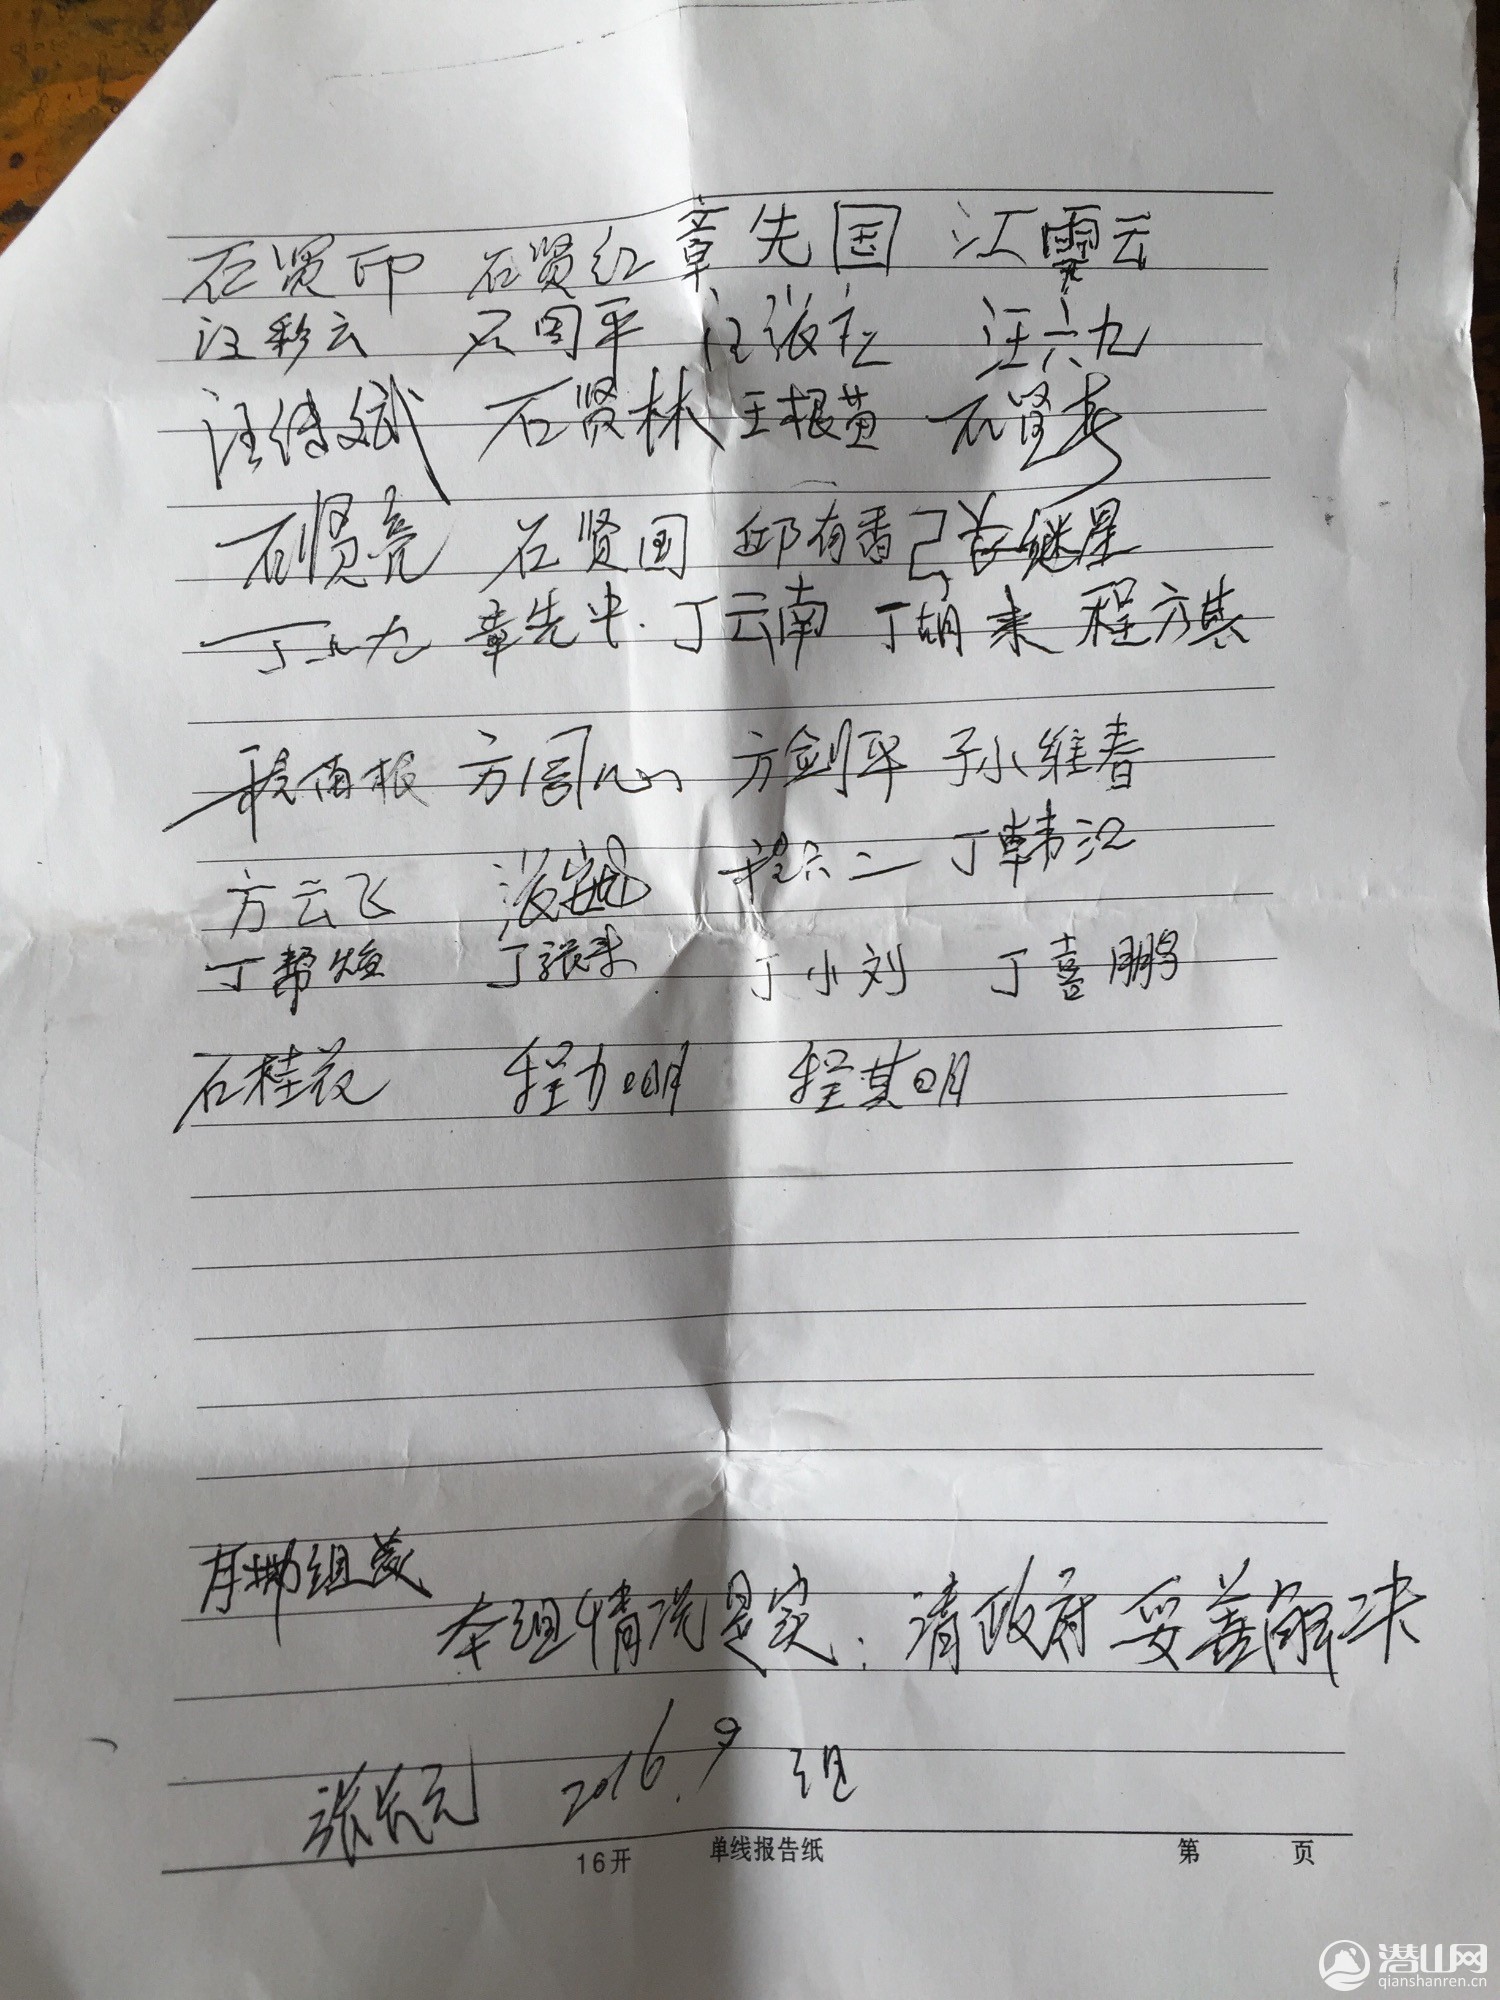 石贤印 石贤红 章先国 江云
汪彩云 石国平 汪六九
汪传斌 石贤林 王根苗 石贤春
石贤亮 石贤国 邱有香 继星
丁六九 章先中 丁云南 丁胡来 程方其
程南根 方剑平 孙维春
方云飞 程六二 丁韩江
丁帮 丁张来 丁小刘 丁喜鹏
石桂花 程力明 程其明
组
本组情况是实, 请政府妥善解决
张长元 2016.9 组
16开 单线报告纸 第 页
潜山网
qianshanren.cn